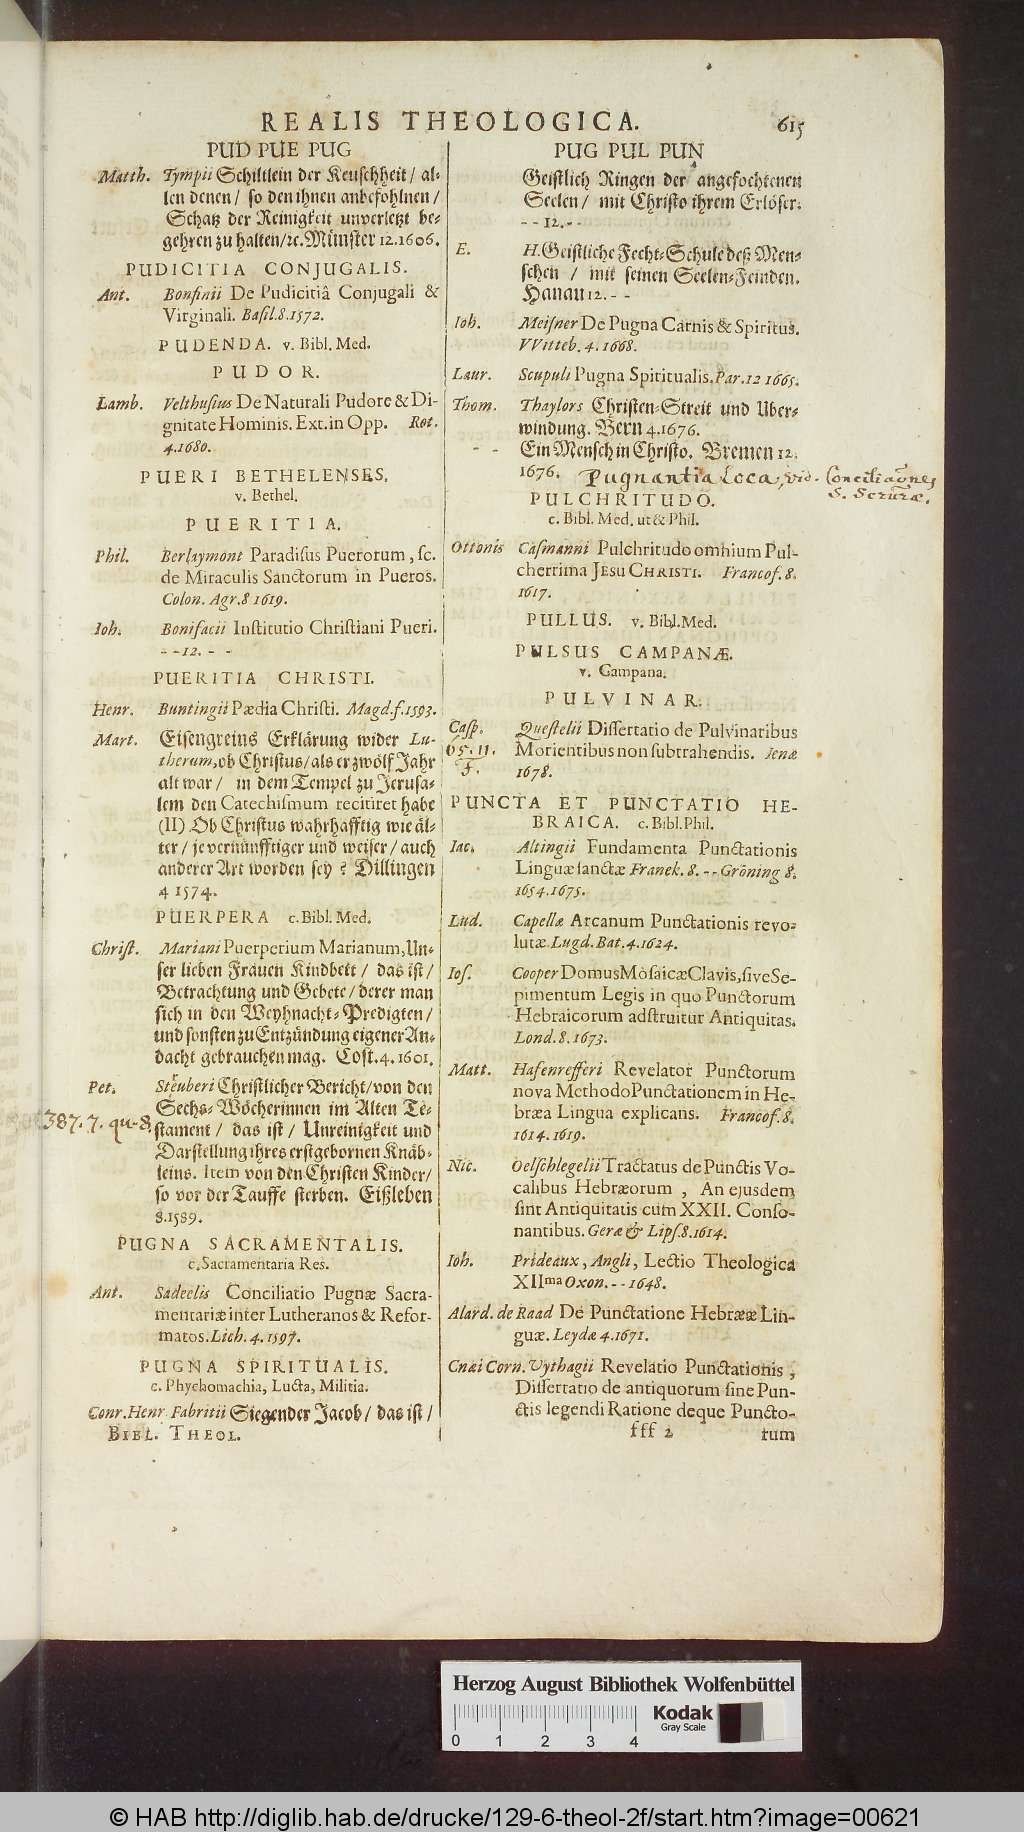 REALIS THEOLOGICA. 615
PUD PUE PUG
Matth. Tympii Schiltlein der Keuschheit / al-
len denen / so den ihnen anbefohlnen /
Schatz der Reinigkeit unverletzt be-
gehren zu halten / ꝛc. Münster 12. 1606.
PUDICITIA CONJUGALIS.
Ant. Bonfinii De Pudicitiâ Conjugali &
Virginali. Basil. 8. 1572.
PUDENDA. v. Bibl. Med.
PUDOR.
Lamb. Velthusius De Naturali Pudore & Di-
gnitate Hominis. Ext. in Opp. Rot.
4. 1680.
PUERI BETHELENSES.
v. Bethel.
PUERITIA.
Phil. Berlaymont Paradisus Puerorum, sc.
de Miraculis Sanctorum in Pueros.
Colon. Agr. 8 1619.
Ioh. Bonifacii Institutio Christiani Pueri.
- - 12. - -
PUERITIA CHRISTI.
Henr. Buntingii Pædia Christi. Magd. f. 1593.
Mart. Eisengreins Erklärung wider Lu-
therum, ob Christus / als er zwölf Jahr
alt war / in dem Tempel zu Jerusa-
lem den Catechismum recitiret habe
(II) Ob Christus wahrhafftig wie äl-
ter / je vernünfftiger und weiser / auch
anderer Art worden sey? Dillingen
4 1574.
PUERPERA c. Bibl. Med.
Christ. Mariani Puerperium Marianum, Un-
ser lieben Frauen Kindbett / das ist /
Betrachtung und Gebete / derer man
sich in den Weyhnacht-Predigten /
und sonsten zu Entzündung eigener An-
dacht gebrauchen mag. Cost. 4. 1601.
Pet. Steuberi Christlicher Bericht / von den
Sechs-Wöcherinnen im Alten Te-
387. 7. qu-8. stament / das ist / Unreinigkeit und
Darstellung ihres erstgebornen Knäb-
leins. Item von den Christen Kinder /
so vor der Tauffe sterben. Eißleben
8. 1589.
PUGNA SACRAMENTALIS.
c. Sacramentaria Res.
Ant. Sadeelis Conciliatio Pugnæ Sacra-
mentariæ inter Lutheranos & Refor-
matos. Lich. 4. 1597.
PUGNA SPIRITUALIS.
c. Phychomachia, Lucta, Militia.
Conr. Henr. Fabritii Siegender Jacob / das ist /
BIBL. THEOL.
PUG PUL PUN
Geistlich Ringen der angefochtenen
Seelen / mit Christo ihrem Erlöser.
- - 12. - -
E. H. Geistliche Fecht-Schule deß Men-
schen / mit seinen Seelen-Feinden.
Hanau 12. - -
Ioh. Meisner De Pugna Carnis & Spiritus.
VVitteb. 4. 1668.
Laur. Scupuli Pugna Spiritualis. Par. 12 1665.
Thom. Thaylors Christen-Streit und Uber-
windung. Bern 4. 1676.
- - Ein Mensch in Christo. Bremen 12.
1676. Pugnantia Loca, vid. Conciliationes
S. Scruræ.
PULCHRITUDO.
c. Bibl. Med. ut & Phil.
Ottonis Casmanni Pulchritudo omnium Pul-
cherrima JESU CHRISTI. Francof. 8.
1617.
PULLUS. v. Bibl. Med.
PULSUS CAMPANÆ.
v. Campana.
PULVINAR.
Casp. Questelii Dissertatio de Pulvinaribus
65. 11. Morientibus non subtrahendis. Jenæ
F. 1678.
PUNCTA ET PUNCTATIO HE-
BRAICA. c. Bibl. Phil.
Iac. Altingii Fundamenta Punctationis
Linguæ sanctæ Franek. 8. - - Gröning 8.
1654. 1675.
Lud. Capellæ Arcanum Punctationis revo-
lutæ. Lugd. Bat. 4. 1624.
Ios. Cooper Domus Mosaicæ Clavis, sive Se-
pimentum Legis in quo Punctorum
Hebraicorum adstruitur Antiquitas.
Lond. 8. 1673.
Matt. Hafenrefferi Revelator Punctorum
nova Methodo Punctationem in He-
bræa Lingua explicans. Francof. 8.
1614. 1619.
Nic. Oelschlegelii Tractatus de Punctis Vo-
calibus Hebræorum, An ejusdem
sint Antiquitatis cum XXII. Conso-
nantibus. Geræ & Lips. 8. 1614.
Ioh. Prideaux, Angli, Lectio Theologica
XIIma Oxon. - - 1648.
Alard. de Raad De Punctatione Hebrææ Lin-
guæ. Leydæ 4. 1671.
Cnæi Corn. Uythagii Revelatio Punctationis,
Dissertatio de antiquorum sine Pun-
ctis legendi Ratione deque Puncto-
fff 2 rum
Herzog August Bibliothek Wolfenbüttel
0 1 2 3 4
Kodak
Gray Scale
© HAB http://diglib.hab.de/drucke/129-6-theol-2f/start.htm?image=00621